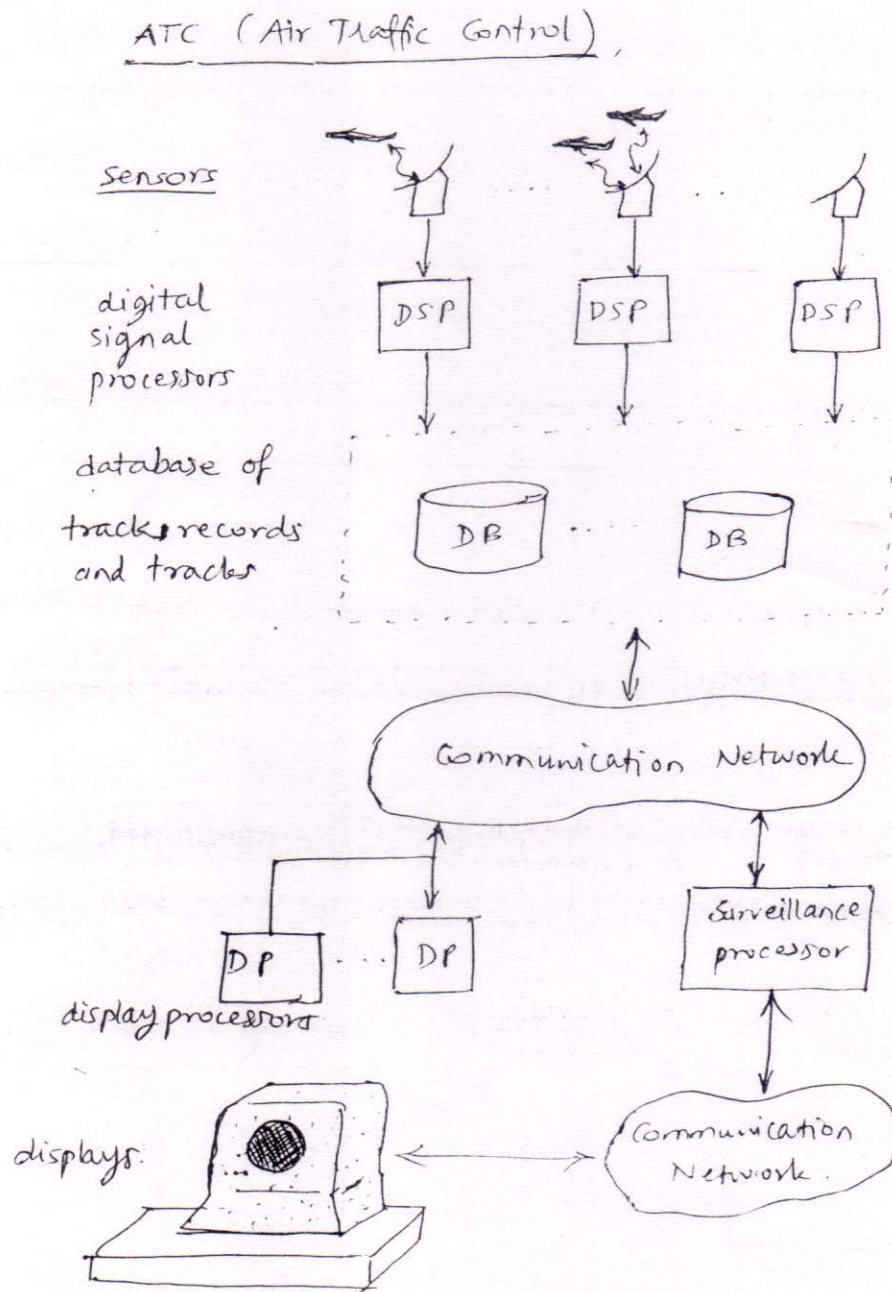 ATC (Air Traffic Control)
Sensors
digital
signal
processors
DSP
DSP
DSP
database of
track records
and tracks
DB
DB
Communication Network
DP
DP
display processors
Surveillance
processor
displays.
Communication
Network.